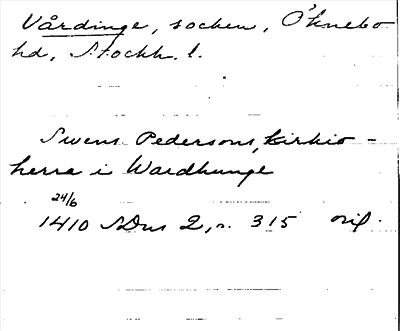 Vårdinge, socken, Öknebo
hd, Stockh. l.
Swens Pedersons, kirkio-
herra i Wardhunge
24/6
1410 SDns 2, s. 315 orig.